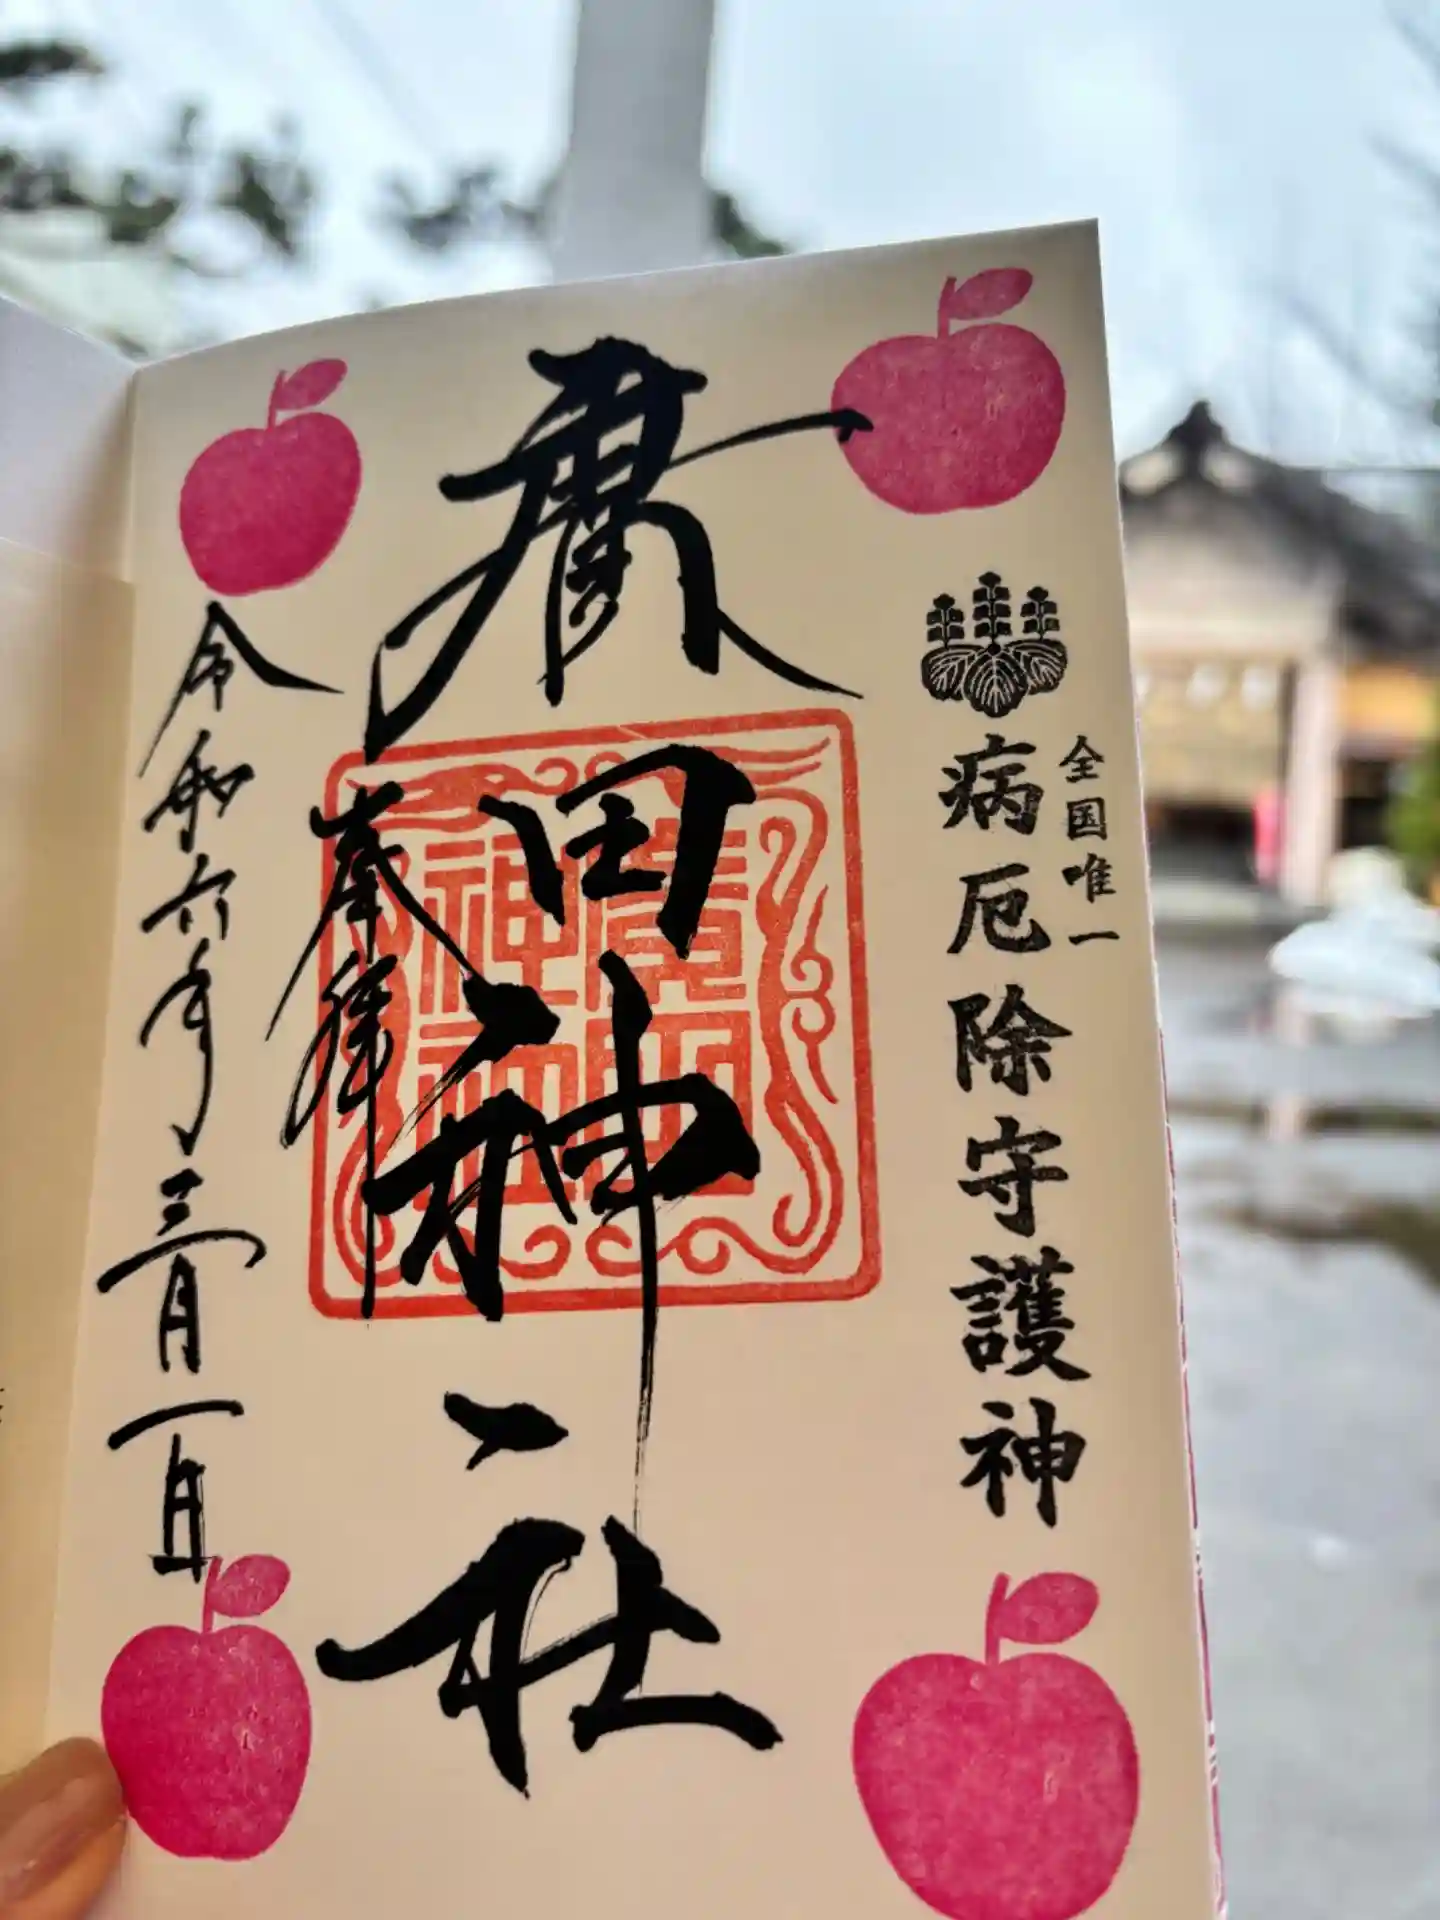 全国唯一
病厄除守護神
廣田神社
奉拝
令和六年三月一日
廣田
神社